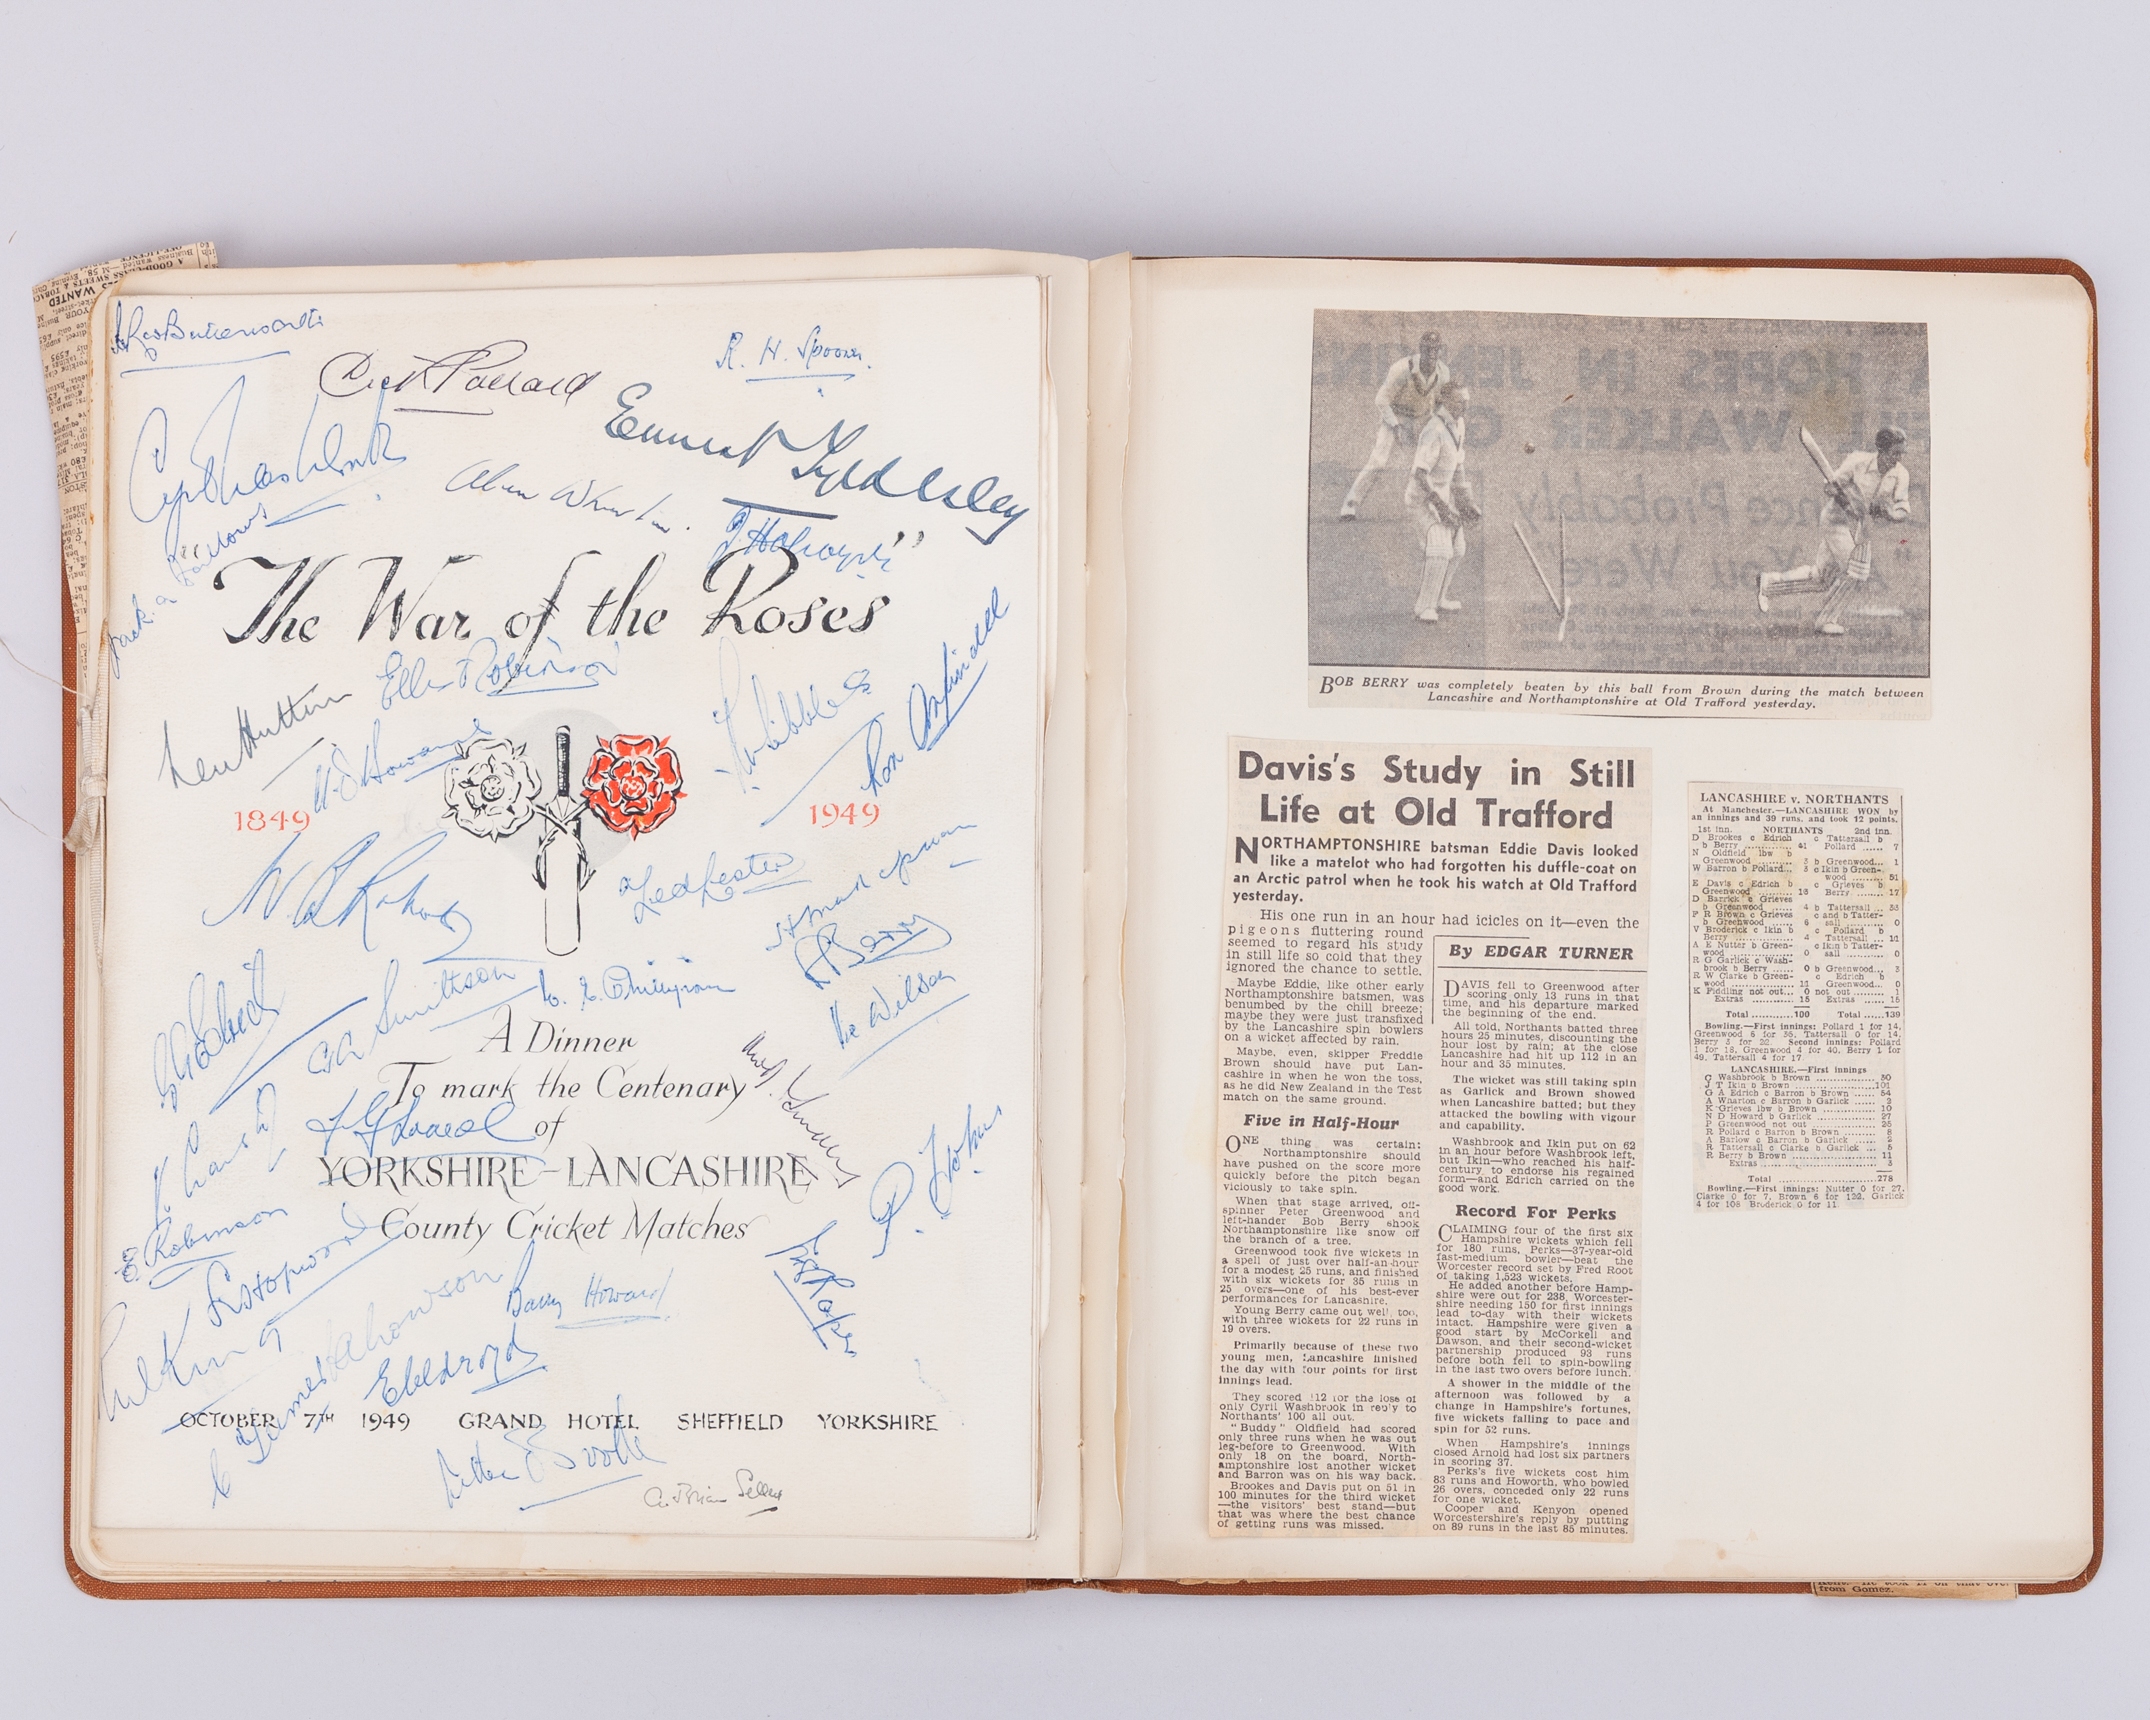 Dick Pollard
R. H. Spooner
Ernest Tyldesley
Cyril Washbrook
Alan Wharton.
The War of the Roses
Len Hutton
Ellis Robinson
N. D. Howard
Ron Aspinall
1849
1949
Ted Lester
R Berry
Vic Wilson
G A Smithson
A Dinner
To mark the Centenary
of
YORKSHIRE–LANCASHIRE
County Cricket Matches
E Robinson
Barry Howard
E Oldroyd
OCTOBER 7TH 1949 GRAND HOTEL SHEFFIELD YORKSHIRE
A. Brian Sellers
BOB BERRY was completely beaten by this ball from Brown during the match between
Lancashire and Northamptonshire at Old Trafford yesterday.
Davis's Study in Still
Life at Old Trafford
NORTHAMPTONSHIRE batsman Eddie Davis looked
like a matelot who had forgotten his duffle-coat on
an Arctic patrol when he took his watch at Old Trafford
yesterday.
His one run in an hour had icicles on it—even the
pigeons fluttering round
seemed to regard his study
in still life so cold that they
ignored the chance to settle.
Maybe Eddie, like other early
Northamptonshire batsmen, was
benumbed by the chill breeze;
maybe they were just transfixed
by the Lancashire spin bowlers
on a wicket affected by rain.
Maybe, even, skipper Freddie
Brown should have put Lan-
cashire in when he won the toss,
as he did New Zealand in the Test
match on the same ground.
Five in Half-Hour
ONE thing was certain:
Northamptonshire should
have pushed on the score more
quickly before the pitch began
viciously to take spin.
When that stage arrived, off-
spinner Peter Greenwood and
left-hander Bob Berry shook
Northamptonshire like snow off
the branch of a tree.
Greenwood took five wickets in
a spell of just over half-an-hour
for a modest 25 runs, and finished
with six wickets for 35 runs in
25 overs—one of his best-ever
performances for Lancashire.
Young Berry came out well, too,
with three wickets for 22 runs in
19 overs.
Primarily because of these two
young men, Lancashire finished
the day with four points for first
innings lead.
They scored 112 for the lose of
only Cyril Washbrook in reply to
Northants' 100 all out.
"Buddy" Oldfield had scored
only three runs when he was out
leg-before to Greenwood. With
only 18 on the board, North-
amptonshire lost another wicket
and Barron was on his way back.
Brookes and Davis put on 51 in
100 minutes for the third wicket
—the visitors' best stand—but
that was where the best chance
of getting runs was missed.
By EDGAR TURNER
DAVIS fell to Greenwood after
scoring only 13 runs in that
time, and his departure marked
the beginning of the end.
All told, Northants batted three
hours 25 minutes, discounting the
hour lost by rain; at the close
Lancashire had hit up 112 in an
hour and 35 minutes.
The wicket was still taking spin
as Garlick and Brown showed
when Lancashire batted; but they
attacked the bowling with vigour
and capability.
Washbrook and Ikin put on 62
in an hour before Washbrook left,
but Ikin—who reached his half-
century, to endorse his regained
form—and Edrich carried on the
good work.
Record For Perks
CLAIMING four of the first six
Hampshire wickets which fell
for 180 runs, Perks—37-year-old
fast-medium bowler—beat the
Worcester record set by Fred Root
of taking 1,523 wickets.
He added another before Hamp-
shire were out for 238, Worcester-
shire needing 150 for first innings
lead to-day with their wickets
intact. Hampshire were given a
good start by McCorkell and
Dawson, and their second-wicket
partnership produced 93 runs
before both fell to spin-bowling
in the last two overs before lunch.
A shower in the middle of the
afternoon was followed by a
change in Hampshire's fortunes,
five wickets falling to pace and
spin for 52 runs.
When Hampshire's innings
closed Arnold had lost six partners
in scoring 37.
Perks's five wickets cost him
83 runs and Howorth, who bowled
26 overs, conceded only 22 runs
for one wicket.
Cooper and Kenyon opened
Worcestershire's reply by putting
on 89 runs in the last 85 minutes.
LANCASHIRE v. NORTHANTS
At Manchester.—LANCASHIRE WON by
an innings and 39 runs, and took 12 points.
1st inn. NORTHANTS 2nd inn.
D Brookes c Edrich c Tattersall b
b Berry 41 Pollard 7
N Oldfield lbw b
Greenwood 3 b Greenwood... 1
W Barron b Pollard... 3 c Ikin b Green-
wood 51
E Davis c Edrich b c Grieves b
Greenwood 13 Berry 17
D Barrick c Grieves
b Greenwood 4 b Tattersall 33
F R Brown c Grieves c and b Tatter-
b Greenwood 6 sall 0
V Broderick c Ikin b c Pollard b
Berry 4 Tattersall 11
A E Nutter b Green- c Ikin b Tatter-
wood 0 sall 0
R G Garlick c Wash-
brook b Berry 0 b Greenwood... 3
R W Clarke b Green- c Edrich b
wood 11 Greenwood... 0
K Fiddling not out... 0 not out 1
Extras 15 Extras 15
Total 100 Total 139
Bowling.—First innings: Pollard 1 for 14,
Greenwood 6 for 35, Tattersall 0 for 14,
Berry 3 for 22. Second innings: Pollard
1 for 18, Greenwood 4 for 40, Berry 1 for
49, Tattersall 4 for 17.
LANCASHIRE.—First innings
C Washbrook b Brown 30
J T Ikin b Brown 101
G A Edrich c Barron b Brown 54
A Wharton c Barron b Garlick 2
K Grieves lbw b Brown 10
N D Howard b Garlick 27
P Greenwood not out 25
R Pollard c Barron b Brown 8
A Barlow c Barron b Garlick 2
R Tattersall c Clarke b Garlick 5
R Berry b Brown 11
Extras 3
Total 278
Bowling.—First innings: Nutter 0 for 27,
Clarke 0 for 7, Brown 6 for 122, Garlick
4 for 108 Broderick 0 for 11.
from Gomez.